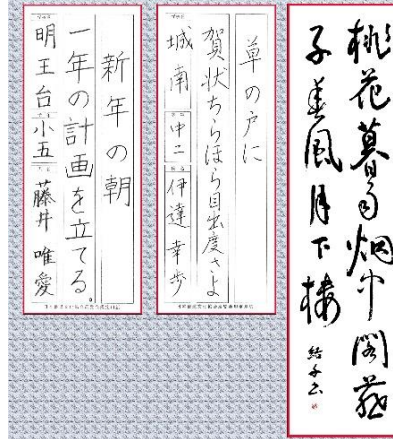 桃花暮雨烟中閣燕
子春風月下樓
草の戸に
賀状ちらほら目出度さよ
城南 中二 伊達幸歩
新年の朝
一年の計画を立てる
明王台 小五 藤井唯愛